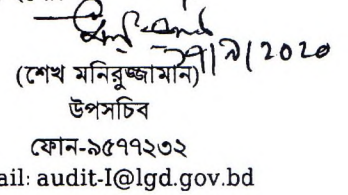 (শেখ মনিরুজ্জামান)
উপসচিব
ফোন-৯৫৭৭২৩২
ail: audit-I@lgd.gov.bd